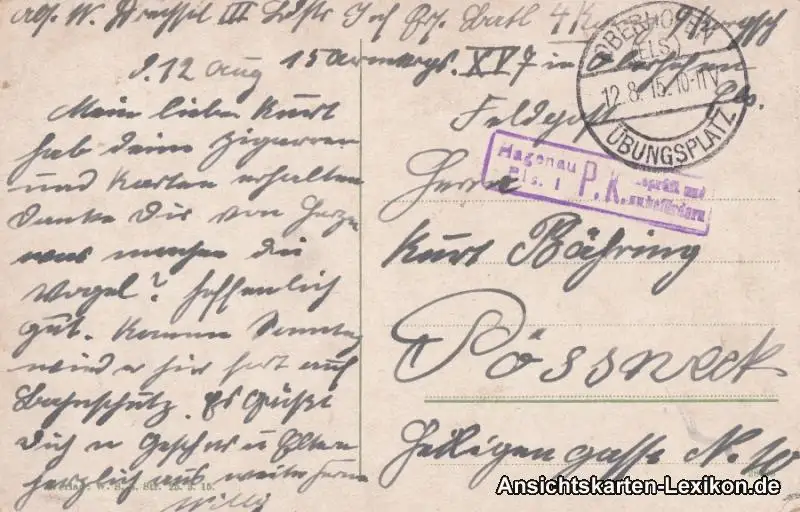 Abs. W. III Ldst. Inf. Batl. 4 K.
15 Armeegr. XV 7 in Oberhofen
Els.
d. 12 Aug
Mein lieber Kurt
hab deine Zigarren
und Karten erhalten
Danke Dir von Herzen
was machen die
Vögel? Hoffentlich
gut. Komme Sonntag
wieder hir fort auf
Bahnschutz. Es Grüßt
Dich u Geschws u Eltern
herzlich aus weiter Ferne
Willy
OBERHOFEN
(ELS.)
12.8.15.10-11V
ÜBUNGSPLATZ
Feldpost
Hagenau
Els. 1
P.K.
geprüft und
zu befördern
Herrn
Kurt Bähring
Pössneck
Heiligengasse N. 10
Ansichtskarten-Lexikon.de